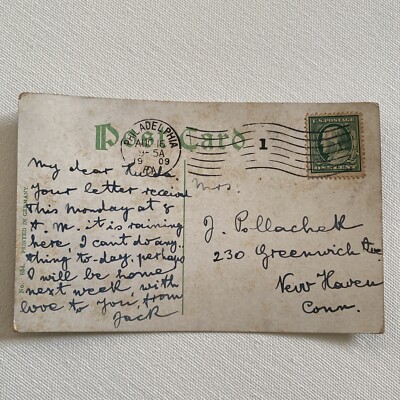 Post Card
PHILADELPHIA
AUG 16
9-5A
1909
PA.
1
U.S. POSTAGE
ONE CENT
No. 184 PRINTED IN GERMANY.
My dear
Your letter received
this Monday at 8
A. M. it is raining
here, I cant do any..
thing to-day. perhaps
I will be home
next week, with
love to you, from
Jack
Mrs.
J. Pollachek
230 Greenwich Ave
New Haven
Conn.